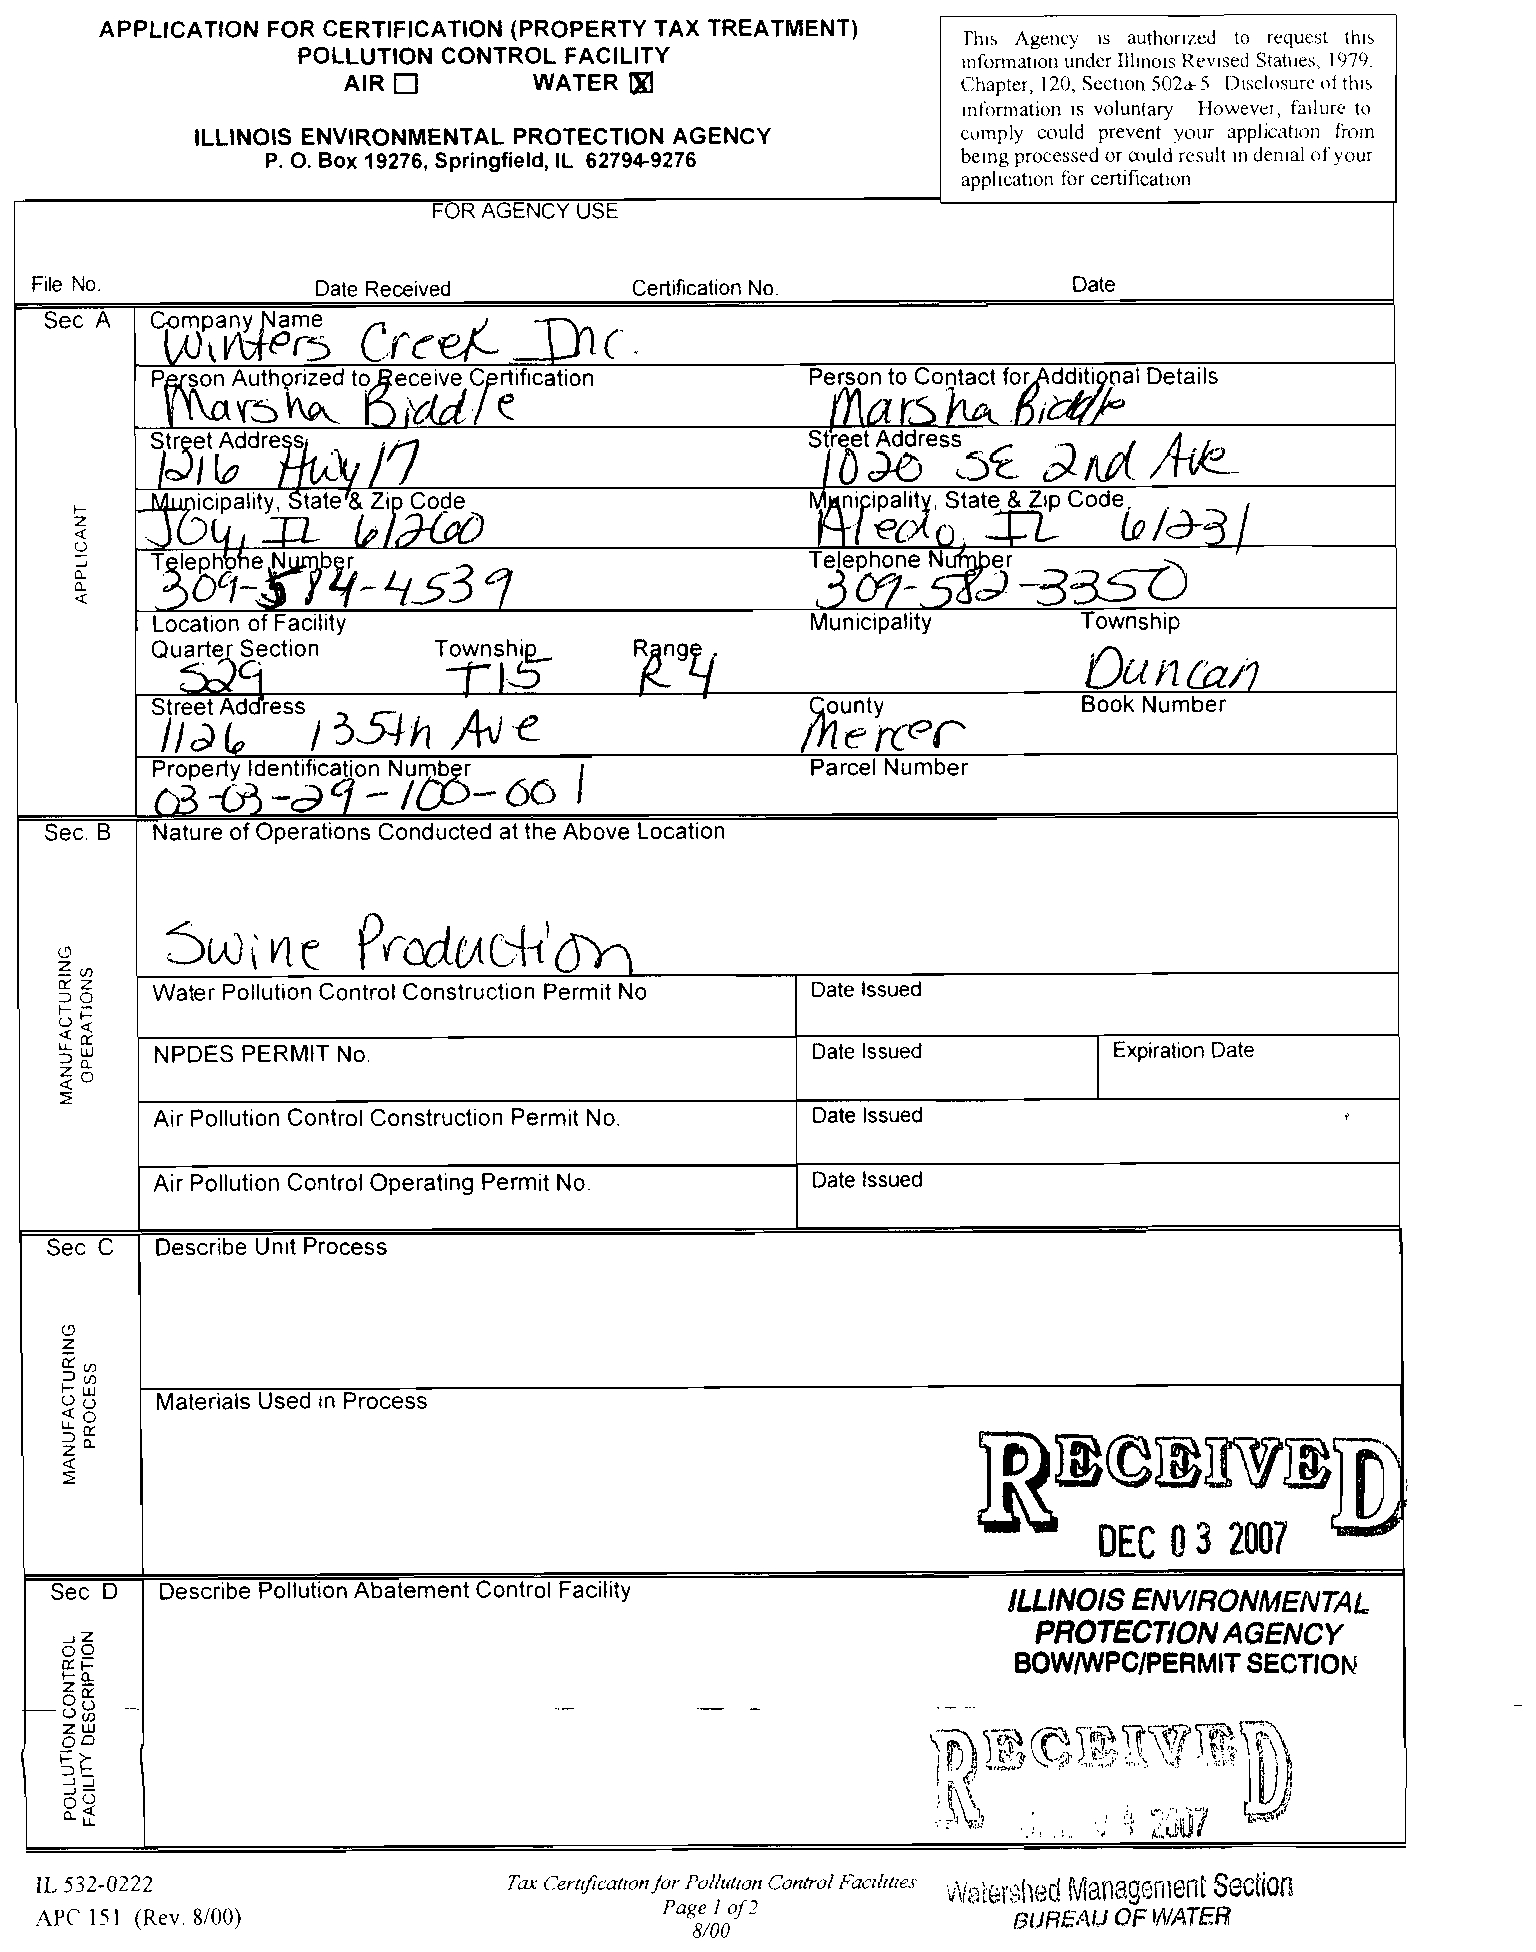 APPLICATION FOR CERTIFICATION (PROPERTY TAX TREATMENT)
POLLUTION CONTROL FACILITY
AIR ☐ WATER ☒
ILLINOIS ENVIRONMENTAL PROTECTION AGENCY
P. O. Box 19276, Springfield, IL 62794-9276
This Agency is authorized to request this
information under Illinois Revised Statues, 1979,
Chapter, 120, Section 502a-5 Disclosure of this
information is voluntary However, failure to
comply could prevent your application from
being processed or could result in denial of your
application for certification
FOR AGENCY USE
File No. Date Received Certification No. Date
Sec A
APPLICANT
Company Name
Winters Creek Inc.
Person Authorized to Receive Certification Person to Contact for Additional Details
Marsha Biddle Marsha Biddle
Street Address Street Address
1216 Hwy 17 1020 SE 2nd Ave
Municipality, State & Zip Code Municipality, State & Zip Code
Joy, IL 61260 Aledo, IL 61231
Telephone Number Telephone Number
309-584-4539 309-582-3350
Location of Facility Municipality Township
Quarter Section Township Range
S29 T15 R4 Duncan
Street Address County Book Number
1126 135th Ave Mercer
Property Identification Number Parcel Number
03-03-29-100-001
Sec. B
MANUFACTURING
OPERATIONS
Nature of Operations Conducted at the Above Location
Swine Production
Water Pollution Control Construction Permit No Date Issued
NPDES PERMIT No. Date Issued Expiration Date
Air Pollution Control Construction Permit No. Date Issued
Air Pollution Control Operating Permit No. Date Issued
Sec C
MANUFACTURING
PROCESS
Describe Unit Process
Materials Used in Process
RECEIVED
DEC 03 2007
Sec D
POLLUTION CONTROL
FACILITY DESCRIPTION
Describe Pollution Abatement Control Facility
ILLINOIS ENVIRONMENTAL
PROTECTION AGENCY
BOW/WPC/PERMIT SECTION
RECEIVED
2007
IL 532-0222
APC 151 (Rev. 8/00)
Tax Certification for Pollution Control Facilities
Page 1 of 2
8/00
Watershed Management Section
BUREAU OF WATER